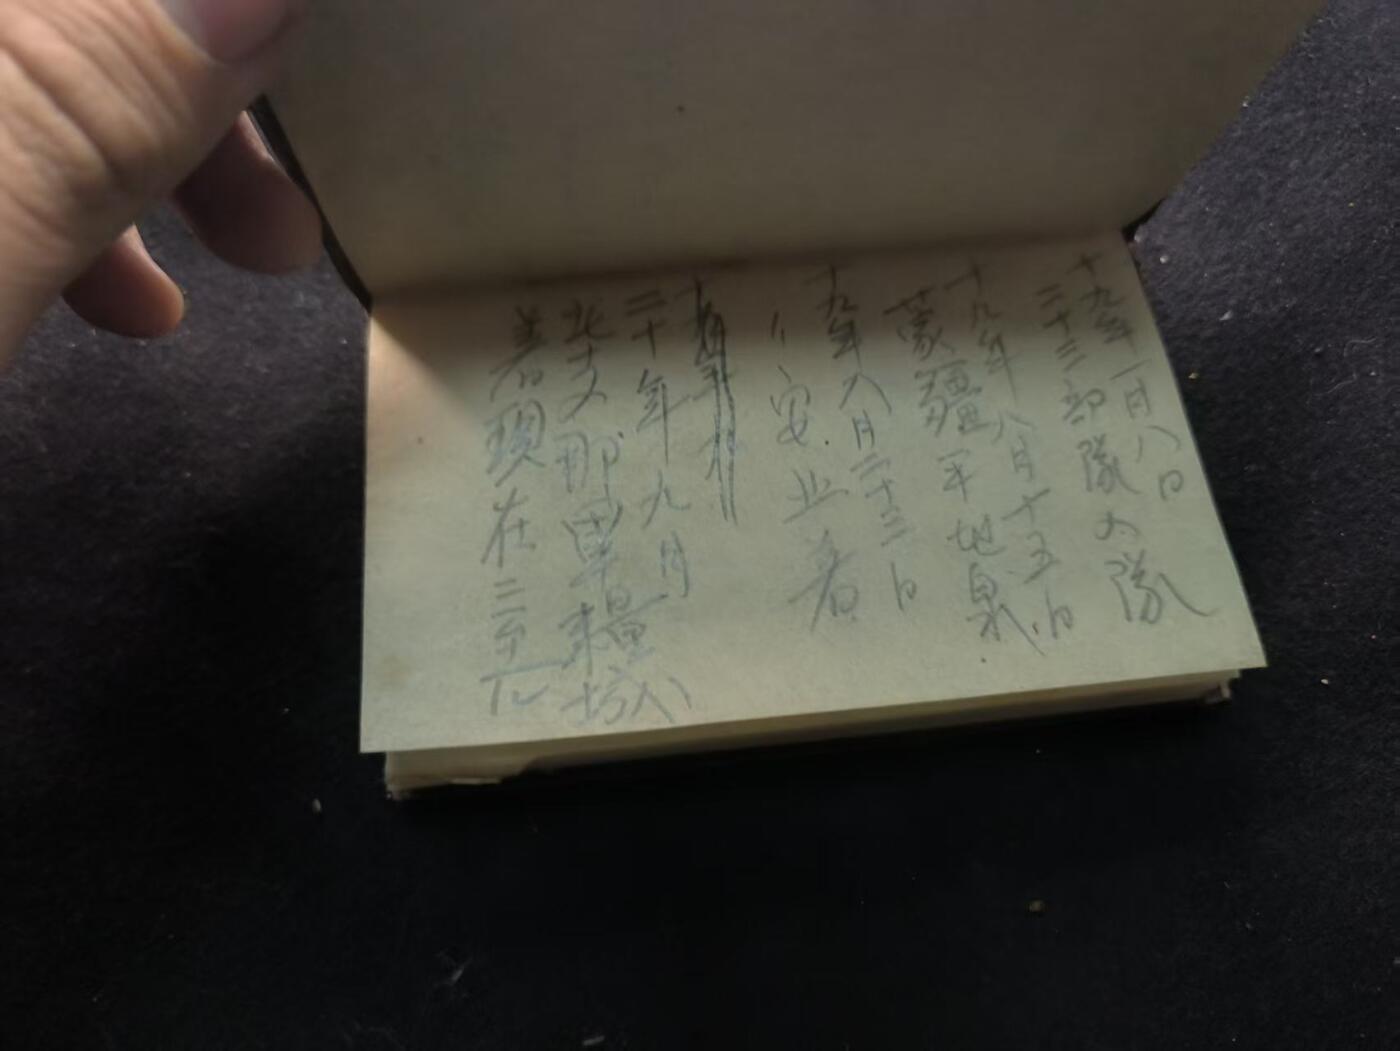 十九年一月八日
二十三部隊入隊
十九年八月十五日
蒙疆平地泉
十九年八月二十三日
〃安北着
二十年九月
北支那軍糧城
着現在ニ至ル